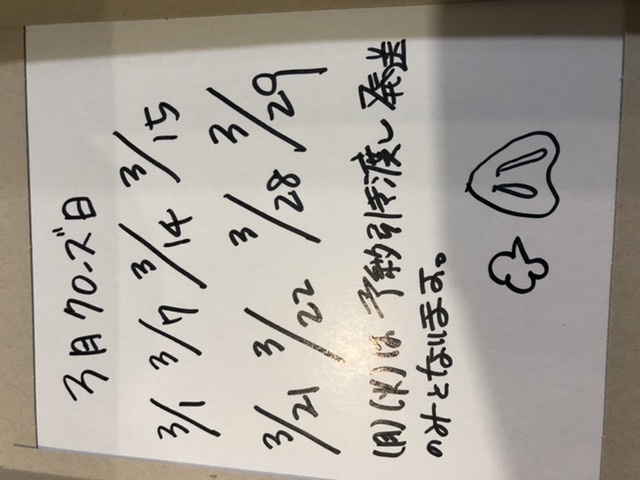 3月クローズ日
3/1 3/7 3/14 3/15
3/21 3/22 3/28 3/29
(月)(火)は予約引き渡し発送
のみとなります。